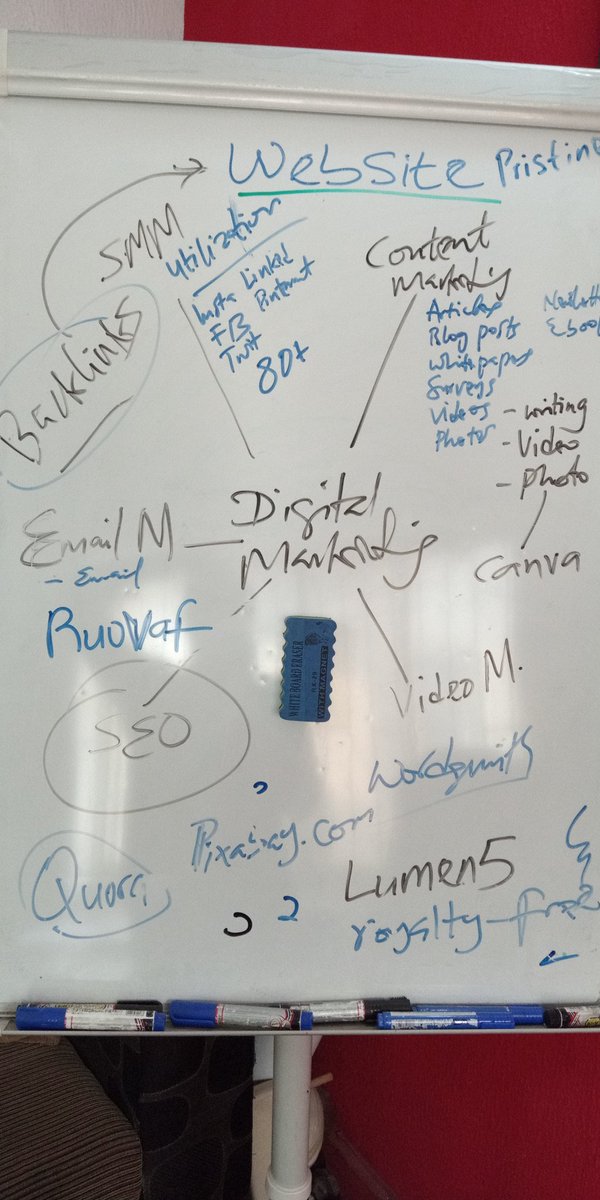 WebSite Pristine
SMM
Utilization
Insta Linked
FB Pinterest
Twit
80+
Content
Marketing
Articles
Blog posts
Whitepapers
Surveys
Videos
Photos
Ebook
- writing
- Video
- photo
Canva
Backlinks
Digital
Marketing
Email M
- Email
RuoVaf
SEO
WHITE BOARD ERASER
WITH MAGNET
Video M.
Wordsmith
Pixabay.com
Quora
Lumen5
royalty-free